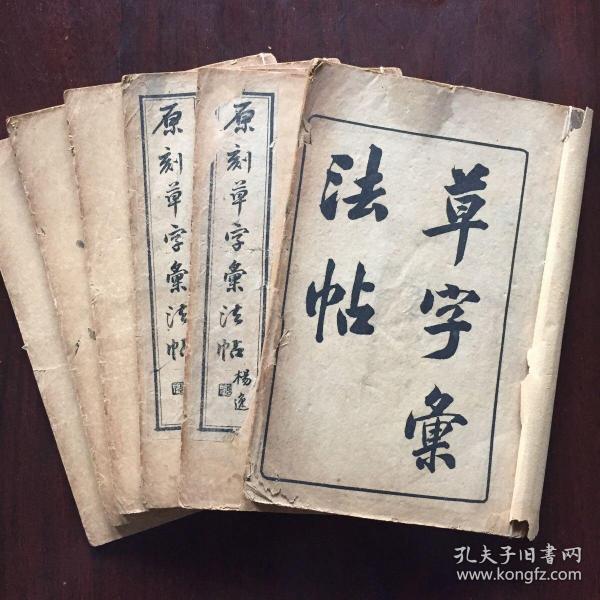 草字彙
法帖
原刻草字彙法帖
楊逸
原刻草字彙法帖
孔夫子旧書网
www.kongfz.com